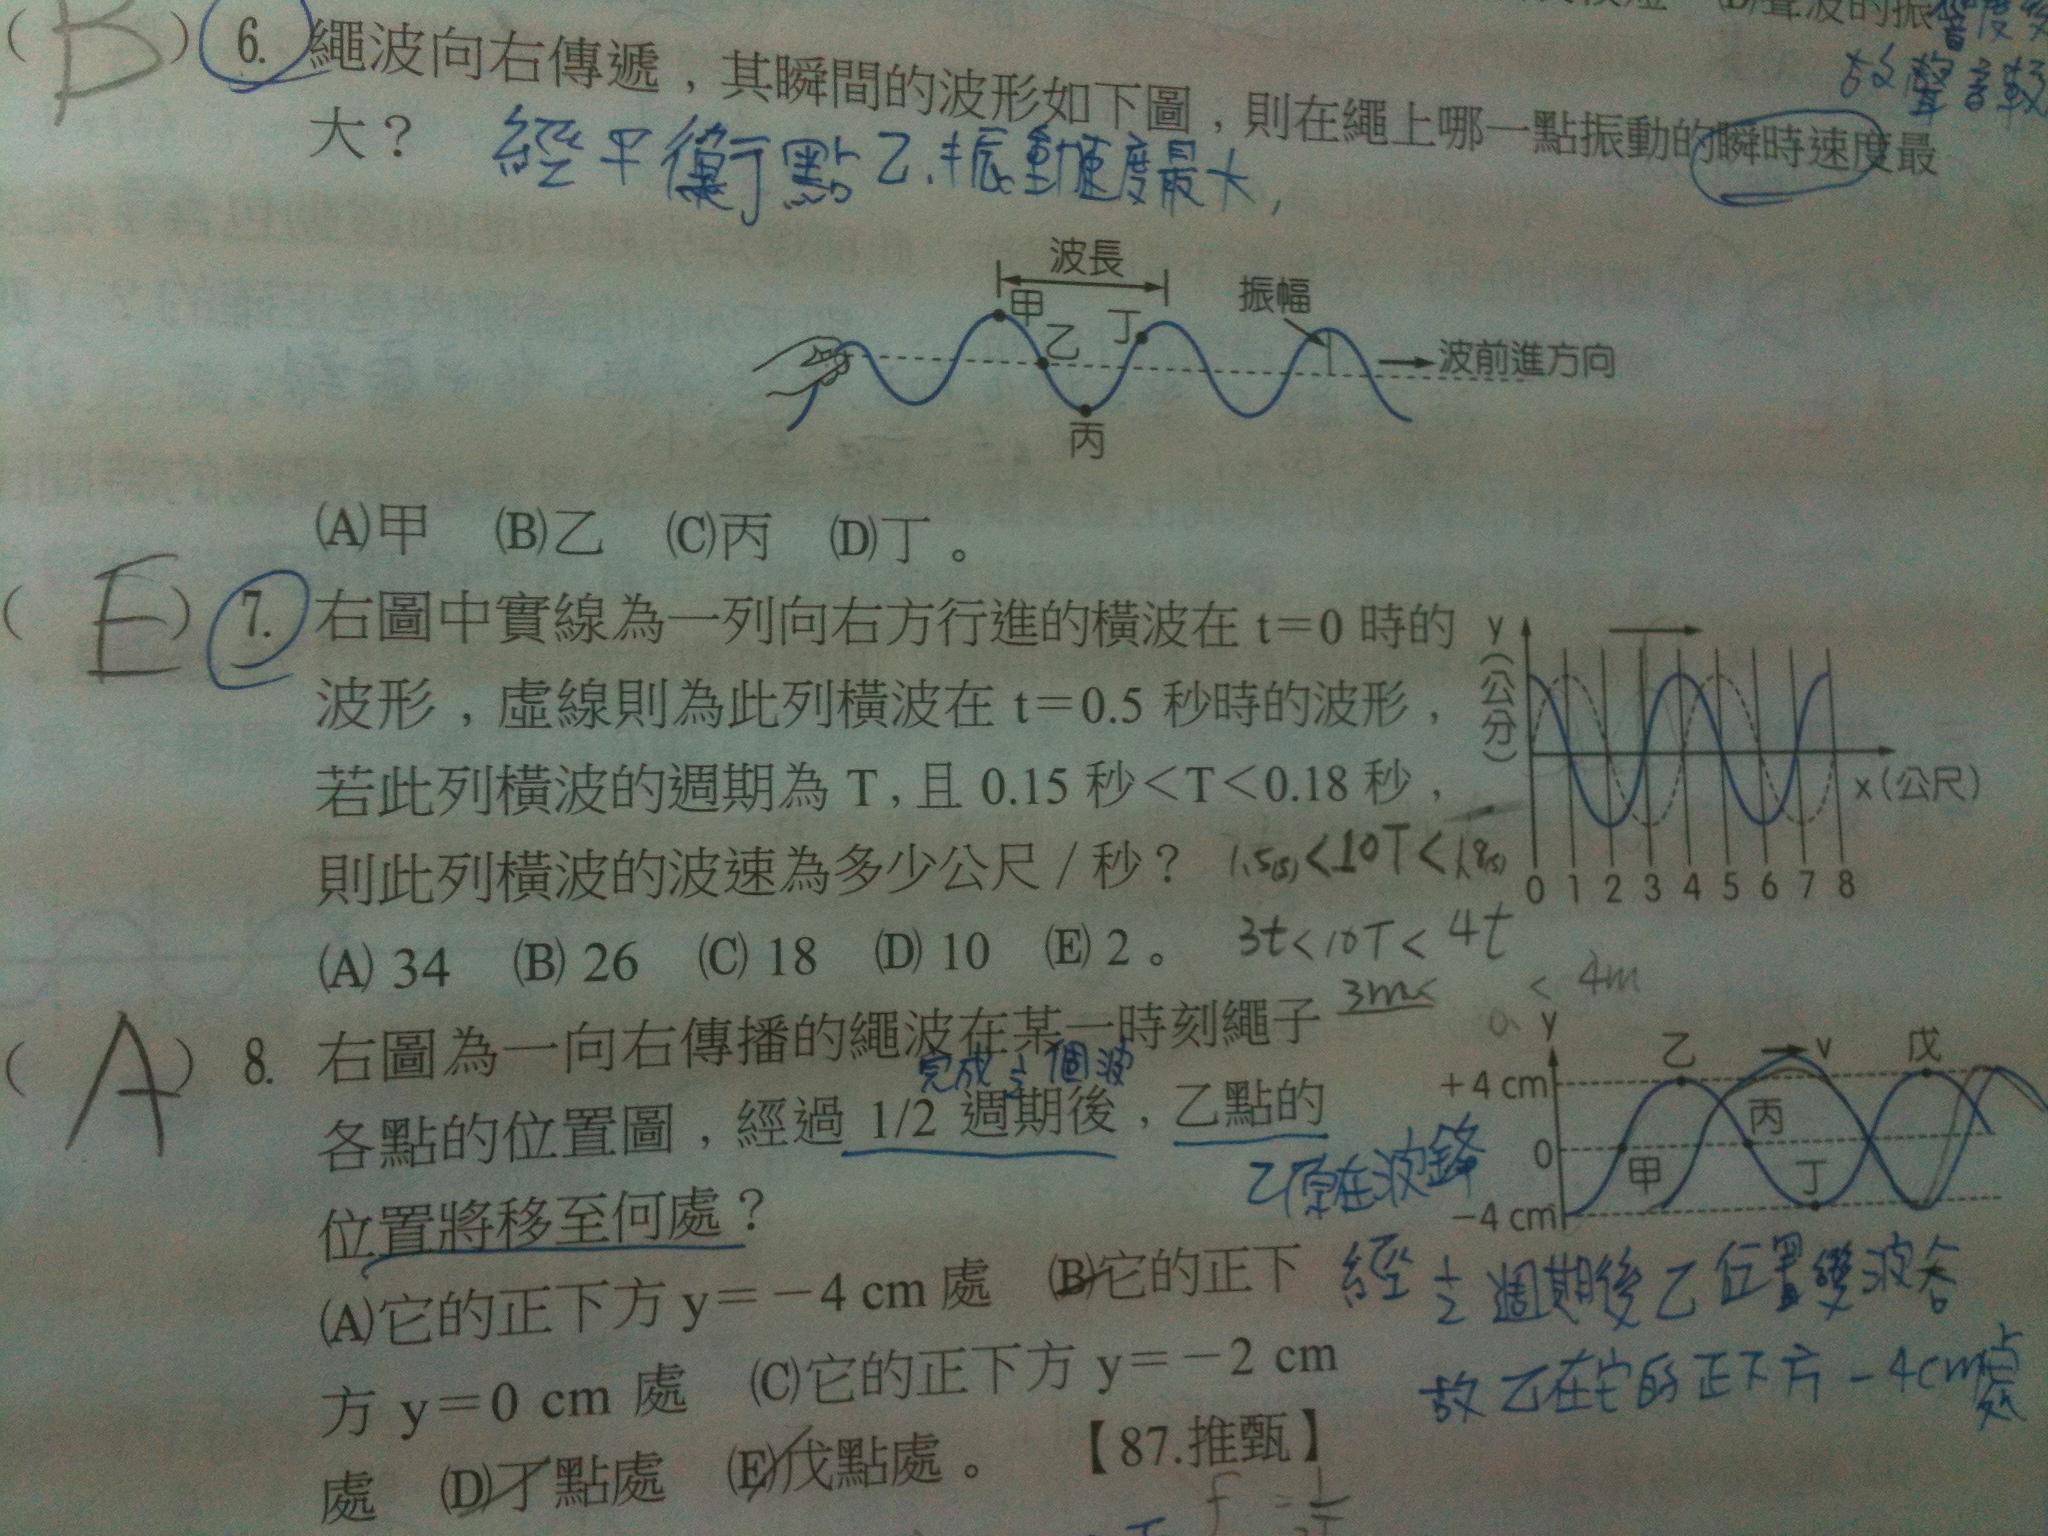 (B) 6. 繩波向右傳遞，其瞬間的波形如下圖，則在繩上哪一點振動的瞬時速度最
大？ 經平衡點乙、振動速度最大,
波長
甲
乙
丁
丙
振幅
波前進方向
(A)甲 (B)乙 (C)丙 (D)丁。
(E) 7. 右圖中實線為一列向右方行進的橫波在 t=0 時的
波形，虛線則為此列橫波在 t=0.5 秒時的波形，
若此列橫波的週期為 T，且 0.15 秒<T<0.18 秒，
則此列橫波的波速為多少公尺／秒？
(A) 34 (B) 26 (C) 18 (D) 10 (E) 2。
y(公分)
x(公尺)
0 1 2 3 4 5 6 7 8
1.5(s)<10T<1.8(s)
3t<10T<4t
3m<
< 4m
(A) 8. 右圖為一向右傳播的繩波在某一時刻繩子
完成½個波
各點的位置圖，經過 1/2 週期後，乙點的
位置將移至何處？
(A)它的正下方 y=-4 cm 處 (B)它的正下
方 y=0 cm 處 (C)它的正下方 y=-2 cm
處 (D)丁點處 (E)戊點處。 【87.推甄】
y
+4 cm
0
-4 cm
甲
乙
丙
丁
戊
v
乙原在波鋒
經½週期後乙位置變波谷
故乙在它的正下方-4cm處